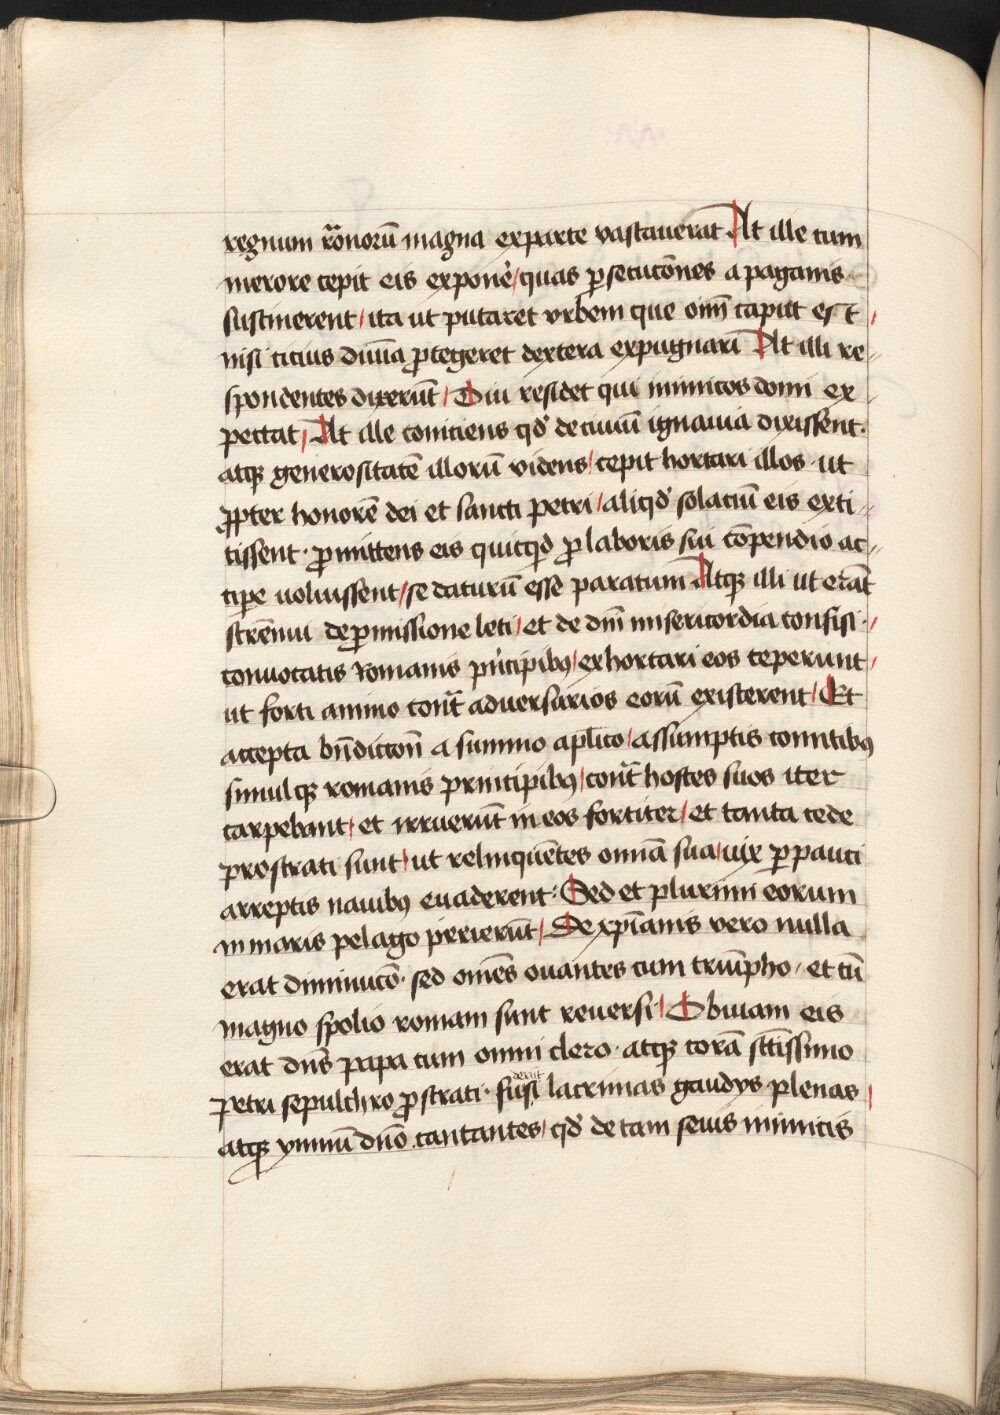 regnum rōnorū magna exparte vastauerat At ille cum
merore cepit eis exponē / quas ꝑsecucōnes a paganis
sustinerent / ita ut putaret vrbem que om̄ caput est /
nisi cicius diuīa ꝓtegeret dextera expugnari At illi re//
spondentes dixerūt / Diu residet qui inimicos domi ex
pectat / At ille coniciens qd̓ de ciuiū ignauia dixissent ·
atqꝫ generositatē illorū videns / cepit hortari illos · ut
ꝓpter honorē dei et sancti petri / aliqd̓ solaciū eis exti//
tissent · ꝓmittens eis quicqd̓ ꝓ laboris sui cōpendio ac//
ciꝑe uoluissent / se daturū esse paratum Atqꝫ illi ut erāt
strēnui de ꝓmissione leti / et de dnī misericordia confisi · /
conuocatis romanis pn̄cipibꝰ / exhortari eos ceperunt /
ut forti animo cont̄ aduersarios eorū existerent / Et
accepta bn̄dictōn a summo aplīco / assumptis comitibꝰ
simulqꝫ romanis principibꝰ / cont̄ hostes suos iter
carpebant / et irruerūt in eos fortiter / et tanta cede
prostrati sunt / ut relinquētes omīa sua / uix ꝑpauci
arreptis nauibꝰ euaderent · Sed et plurimi eorum
in maris pelago perierūt / De xp̄ianis vero nulla
erat diminucō · sed om̄es ouantes cum triūpho / et cū
magno spolio romam sunt reuersi / Obuiam eis
erat dn̄s papa cum omni clero · atqꝫ corā sc̄tissimo
petri sepulchro ꝓstrati · fuderūt lacrimas gaudys plenas /
atqꝫ ymnū dn̄o cantantes / qd̓ de tam seuis inimicis